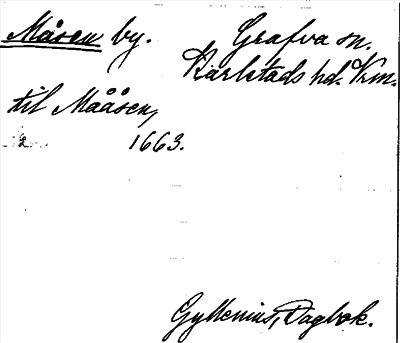 Måsen by. Grafva sn.
Karlstads hd. Vrm.
til Mååsen,
1663.
Gyllenius, Dagbok.